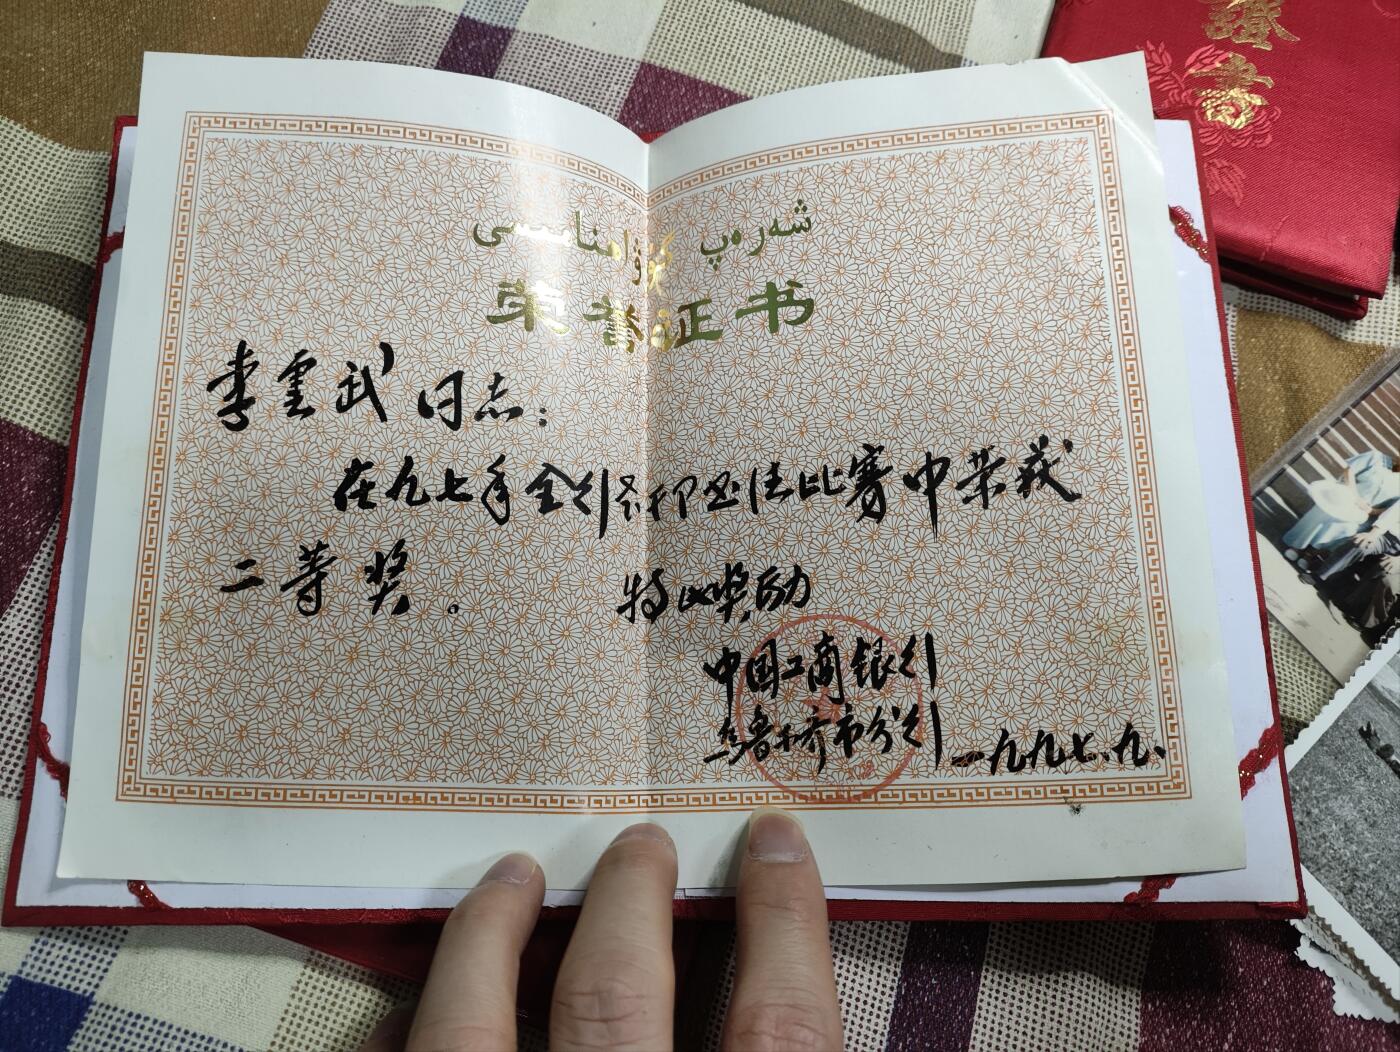 證書
شەرەپ گۇۋاھنامىسى
荣誉证书
李云武同志：
在九七年全行硬笔书法比赛中荣获
二等奖。 特此奖励
中国工商银行
乌鲁木齐市分行
一九九七、九、